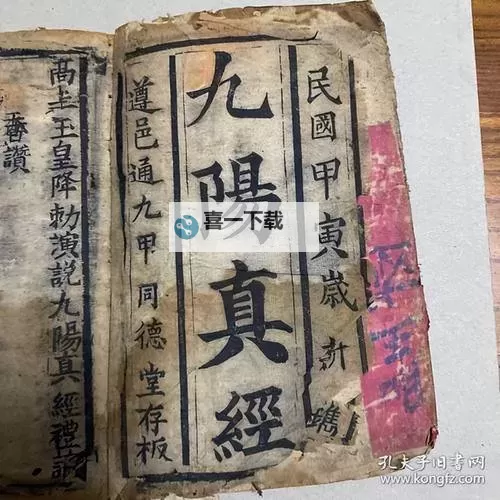 民國甲寅歲新鐫
九陽真經
遵邑通九甲同德堂存板
香讚
高上玉皇降勅演説九陽真經禮
喜一下载
孔夫子旧书网
www.kongfz.com